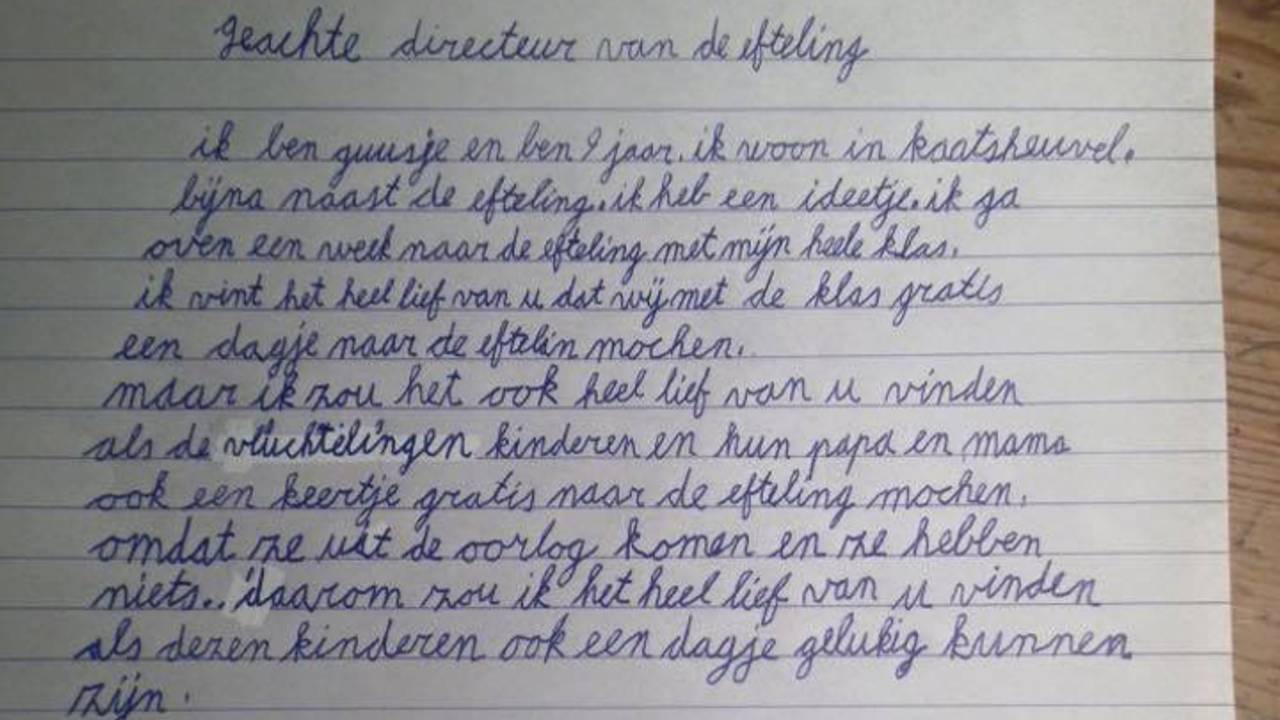 geachte directeur van de efteling
ik ben guusje en ben 9 jaar. ik woon in kaatsheuvel.
bijna naast de efteling. ik heb een ideetje. ik ga
oven een week naar de efteling met mijn heele klas.
ik vint het heel lief van u dat wij met de klas gratis
een dagje naar de eftelin mochen.
maar ik zou het ook heel lief van u vinden
als de vluchtelingen kinderen en hun papa en mama
ook een keertje gratis naar de efteling mochen.
omdat ze uit de oorlog komen en ze hebben
niets.. daarom zou ik het heel lief van u vinden
als dezen kinderen ook een dagje gelukig kunnen
zijn.